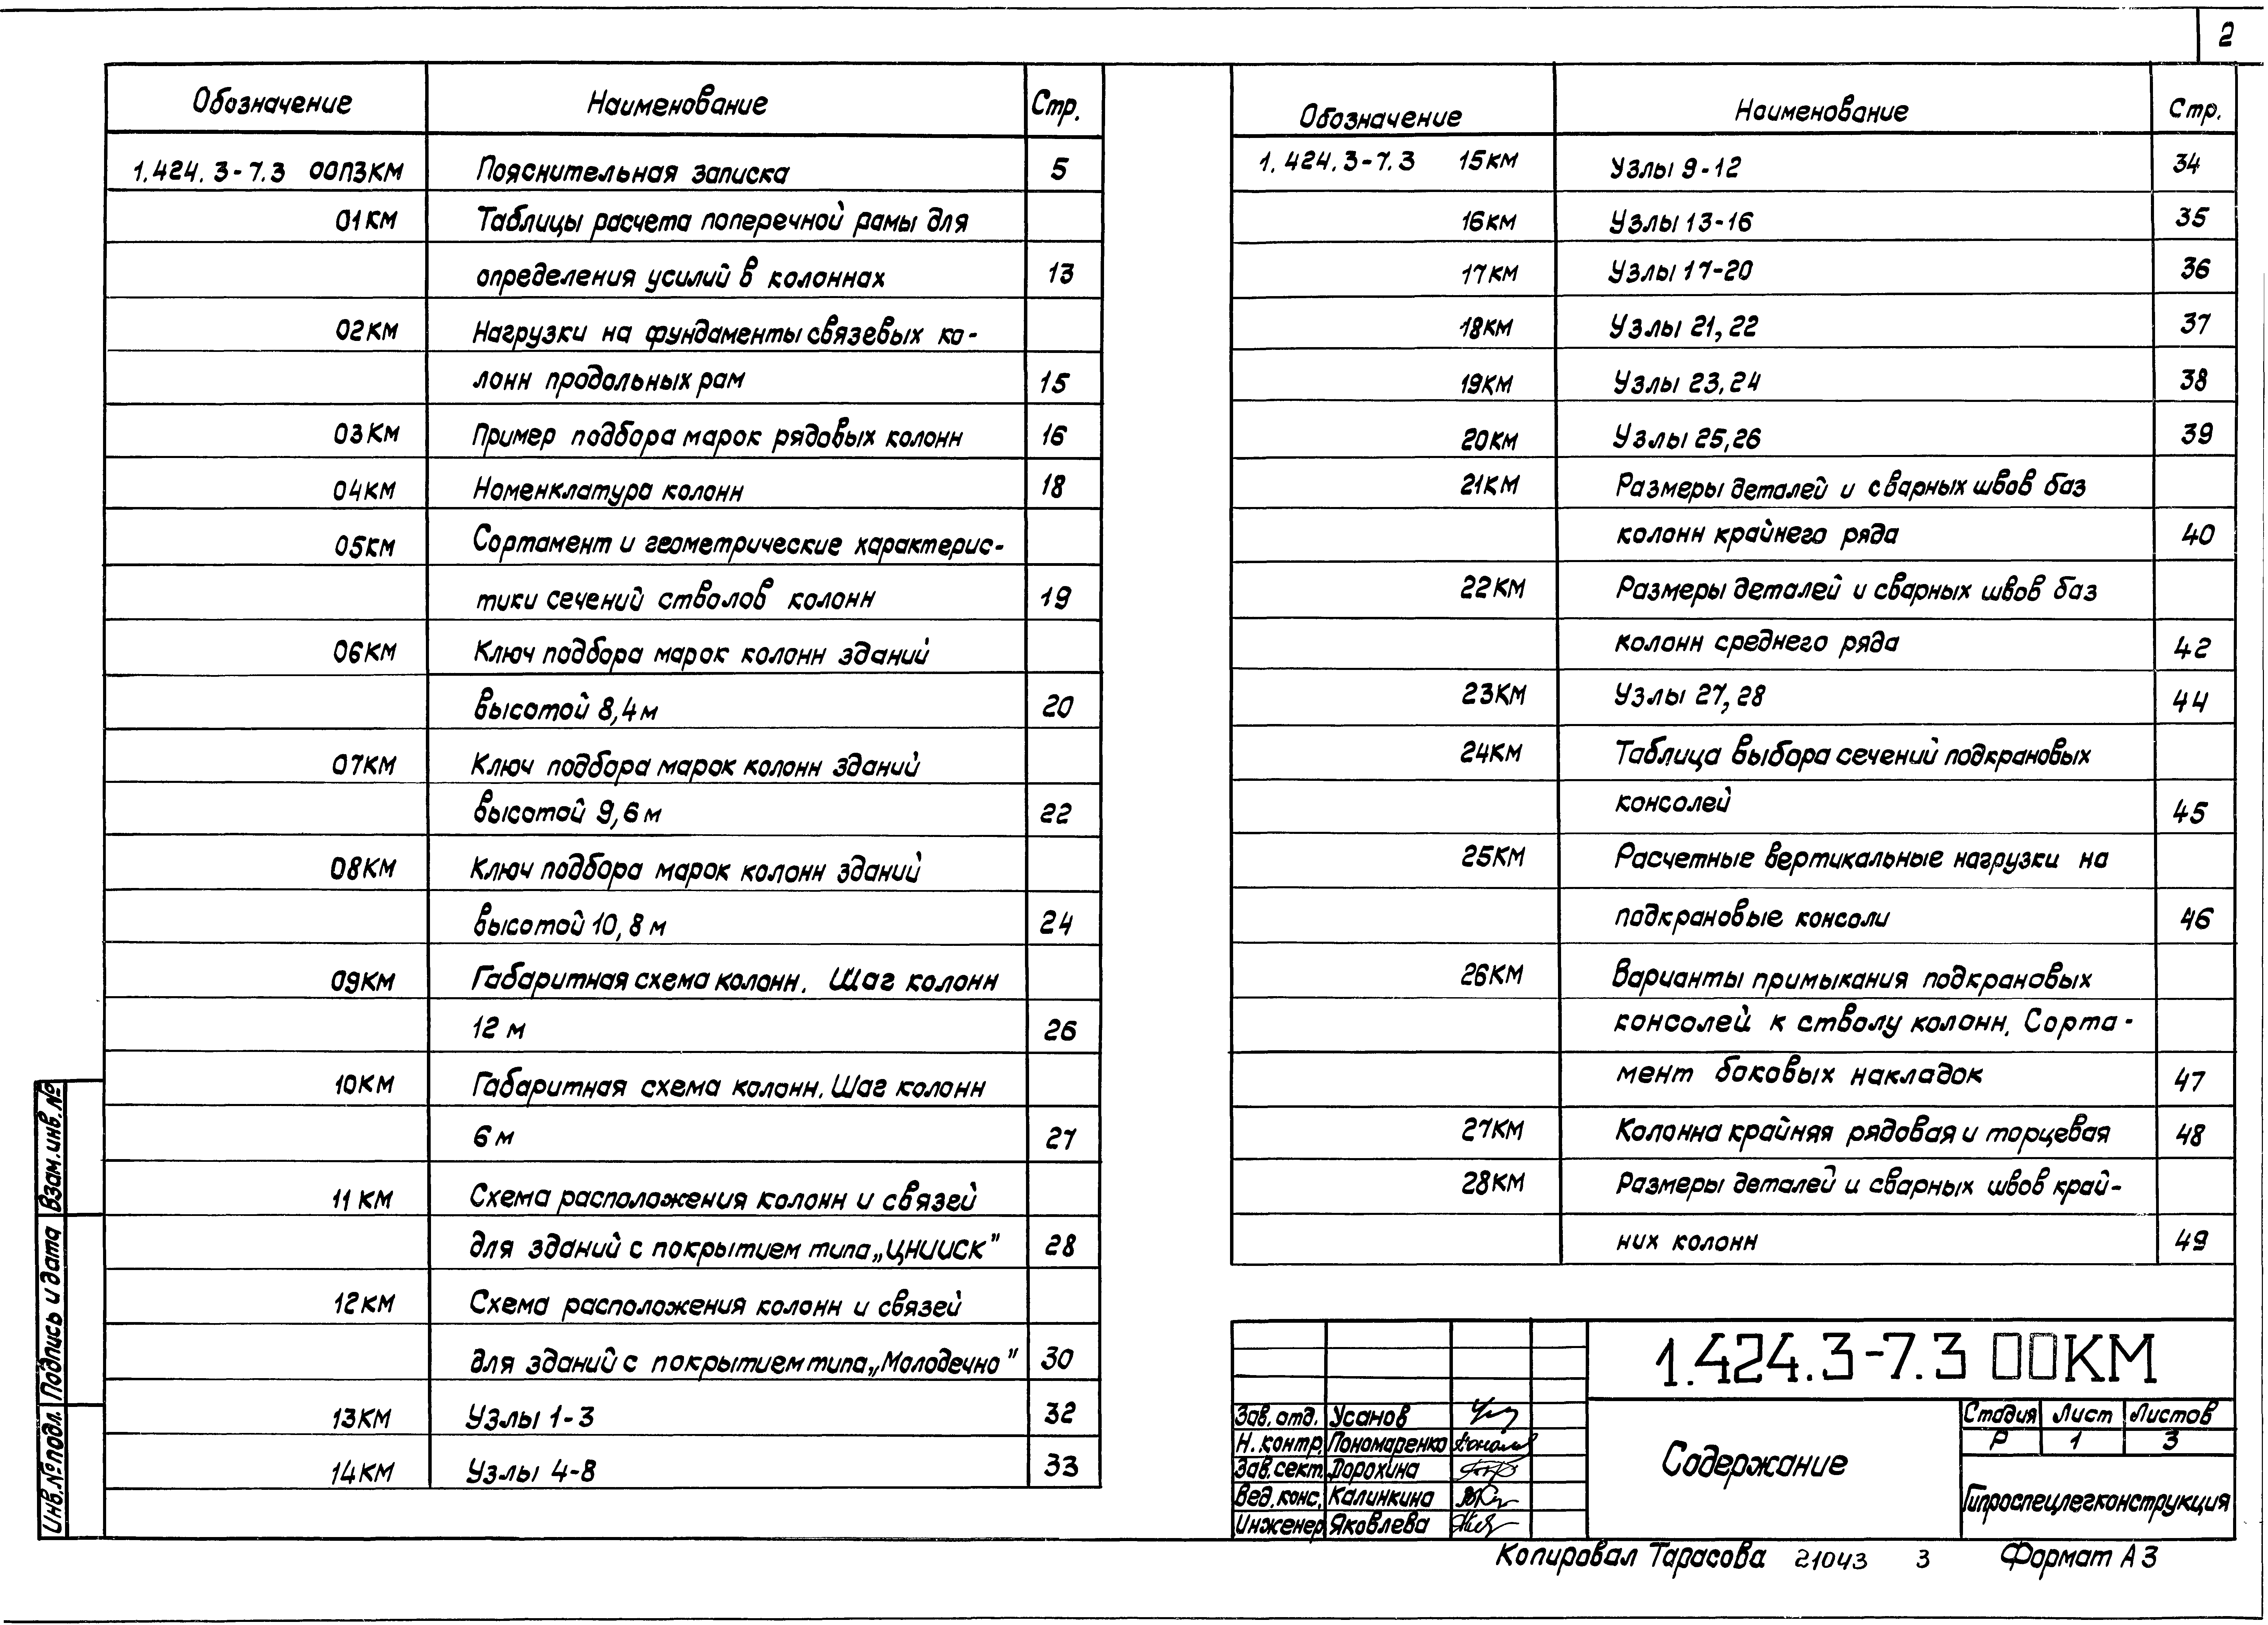 2
Обозначение Наименование Стр.
1.424.3-7.3 00ПЗКМ Пояснительная записка 5
01КМ Таблицы расчета поперечной рамы для
определения усилий в колоннах 13
02КМ Нагрузки на фундаменты связевых ко-
лонн продольных рам 15
03КМ Пример подбора марок рядовых колонн 16
04КМ Номенклатура колонн 18
05КМ Сортамент и геометрические характерис-
тики сечений стволов колонн 19
06КМ Ключ подбора марок колонн зданий
высотой 8,4 м 20
07КМ Ключ подбора марок колонн зданий
высотой 9,6 м 22
08КМ Ключ подбора марок колонн зданий
высотой 10,8 м 24
09КМ Габаритная схема колонн. Шаг колонн
12 м 26
10КМ Габаритная схема колонн. Шаг колонн
6 м 27
11КМ Схема расположения колонн и связей
для зданий с покрытием типа „ЦНИИСК" 28
12КМ Схема расположения колонн и связей
для зданий с покрытием типа „Молодечно" 30
13КМ Узлы 1-3 32
14КМ Узлы 4-8 33
Обозначение Наименование Стр.
1.424.3-7.3 15КМ Узлы 9-12 34
16КМ Узлы 13-16 35
17КМ Узлы 17-20 36
18КМ Узлы 21,22 37
19КМ Узлы 23,24 38
20КМ Узлы 25,26 39
21КМ Размеры деталей и сварных швов баз
колонн крайнего ряда 40
22КМ Размеры деталей и сварных швов баз
колонн среднего ряда 42
23КМ Узлы 27,28 44
24КМ Таблица выбора сечений подкрановых
консолей 45
25КМ Расчетные вертикальные нагрузки на
подкрановые консоли 46
26КМ Варианты примыкания подкрановых
консолей к стволу колонн. Сорта-
мент боковых накладок 47
27КМ Колонна крайняя рядовая и торцевая 48
28КМ Размеры деталей и сварных швов край-
них колонн 49
1.424.3-7.3 00КМ
Зав. отд. Усанов
Н. контр. Пономаренко
Зав. сект. Дорохина
Вед. конс. Калинкина
Инженер Яковлева
Содержание
Стадия Лист Листов
Р 1 3
Гипроспецлегконструкция
Копировал Тарасова 21043 3 Формат А3
Инв.№ подл. Подпись и дата Взам. инв. №